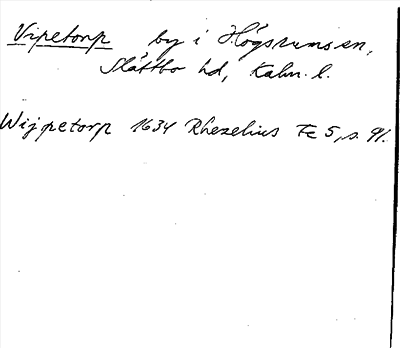 Vipetorp by i Högsrums sn,
Slättbo hd, Kalm. l.
Wijpetorp 1634 Rhezelius Fc 5, s. 91.